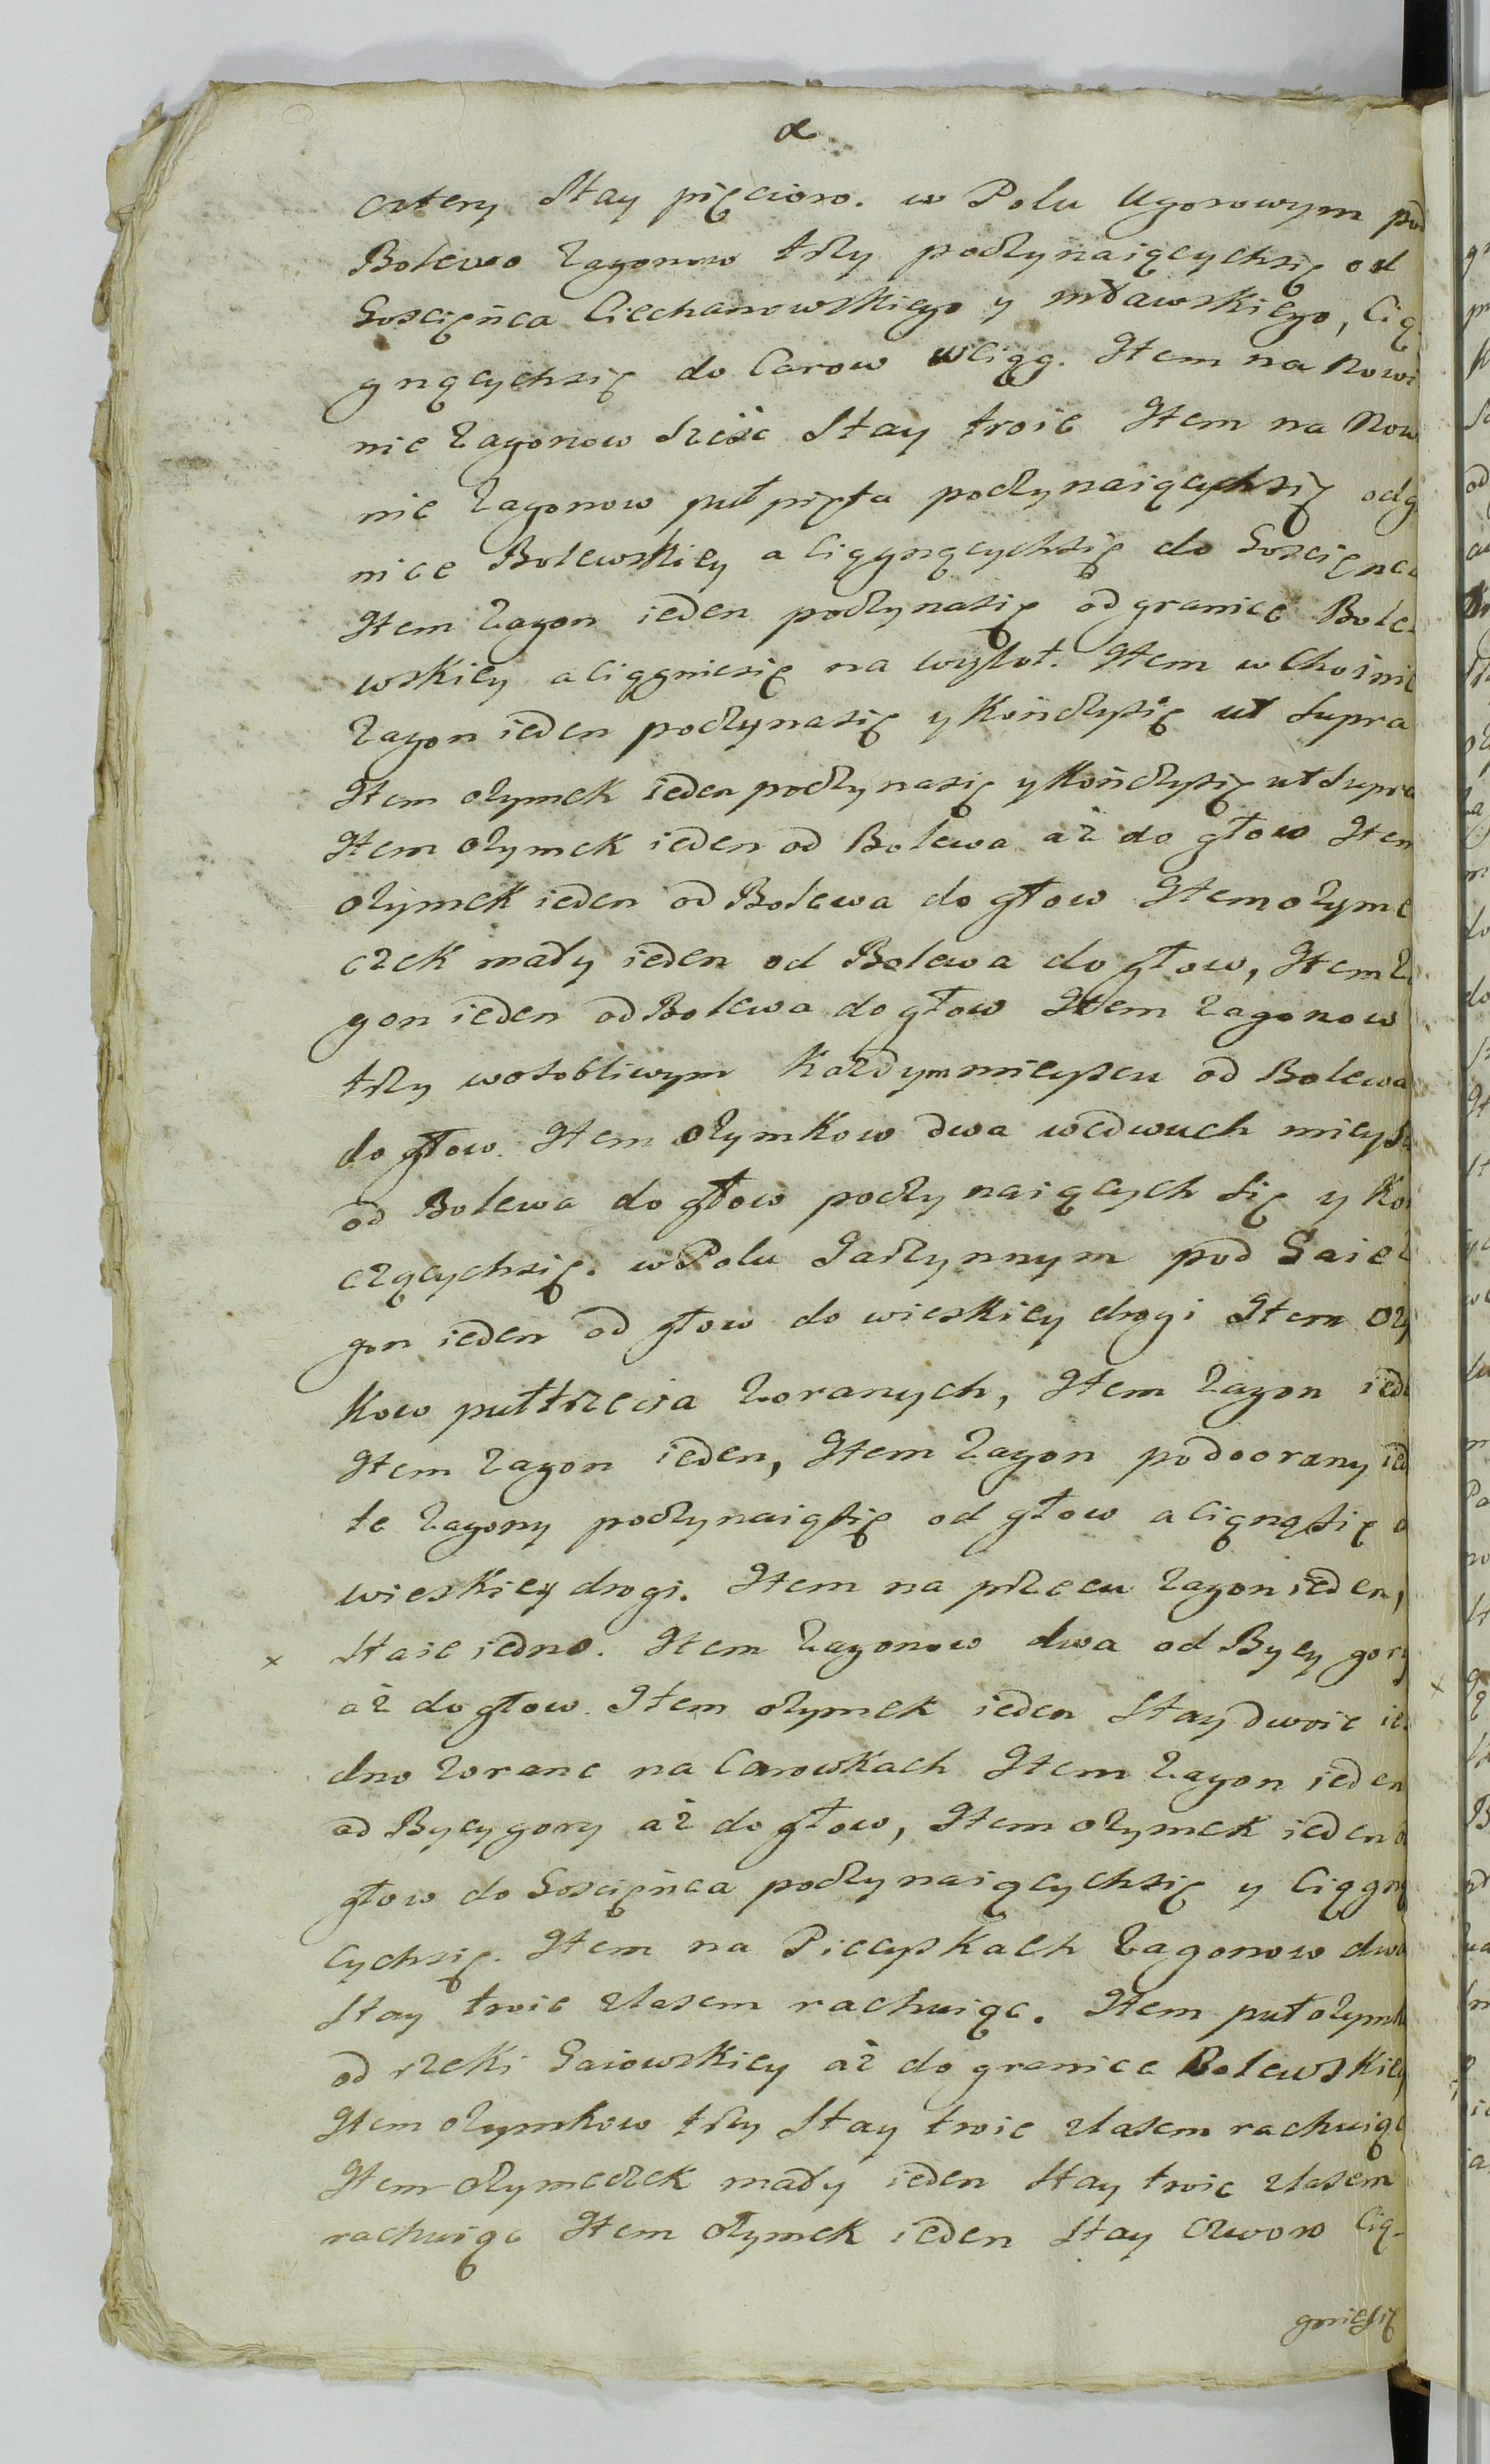 α
cztery Stay pięcioro. w Polu Ugorowym pod
Bolewo Zagonow trzy poczynaiącychsię od
Goscięńca Ciechanowskiego y mławskiego, Cią
gnącychsię do Carow wciąg. Item na Nowi
nie Zagonow Sześć Stay troie Item na Now
nie Zagonow puł pięta poczynaiącychsię odg
nice Bolewskiey a Ciągnącychsię do Goscięnca
Item Zagon ieden poczynasię od granice Bole
wskiey a Ciągniesię na wylot. Item w Choinie
Zagon ieden poczynasię y Kończysię ut Supra
Item ozymek ieden poczynasię y Kończysię ut Supra
Item Ozymek ieden od Bolewa aż do głow Item
Ozymek ieden od Bolewa do głow Item ozyme
czek mały ieden od Bolewa do głow, Item Za
gon ieden od Bolewa do głow Item Zagonow
trzy w osobliwym Każdym mieyscu od Bolewa
do głow. Item Ozymkow dwa wedwuch mieysc
od Bolewa do głow poczynaiących się y Koń
czącychsię. w Polu Jarzynnym pod Gaie
gon ieden od głow do wieskiey drogi Item Ozy
Kow pułtrzecia Zoranych, Item Zagon iede
Item Zagon ieden, Item Zagon podoorany ied
te Zagony poczynaiąsię od głow a Ciągnąsię
wieskiey drogi. Item na przecu Zagon ieden,
x Staie iedno. Item Zagonow dwa od Bycy gory
aż do głow. Item ozymek ieden Stay dwoie ie
dno Zorane na Carowkach Item Zagon ieden
od Bycygory aż do głow, Item ozymek ieden
głow do Goscięńca poczynaiącychsię y Ciągną
cychsię. Item na Piecyskach Zagonow dwa
Stay troie zlasem rachuiąc. Item puł ozymk
od rzeki Gaiowskiey aż do granice Bolewskiey
Item Ozymkow trzy Stay troie zlasem rachuiąc
Item Ozymeczek mały ieden Stay troie zlasem
rachuiąc Item ozymek ieden Stay czworo Cią-
gniesię